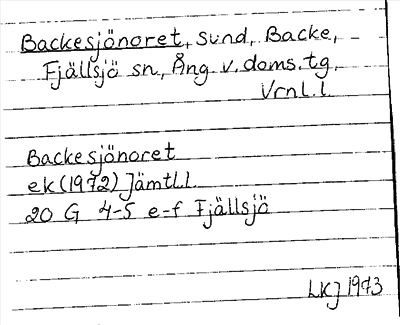 Backesjönoret, sund, Backe,
Fjällsjö sn, Ång v. doms. tg.
Vrnl.l.
Backesjönoret
ek (1972) Jämtl.l.
20 G 4-5 e-f Fjällsjö
LKJ 1973